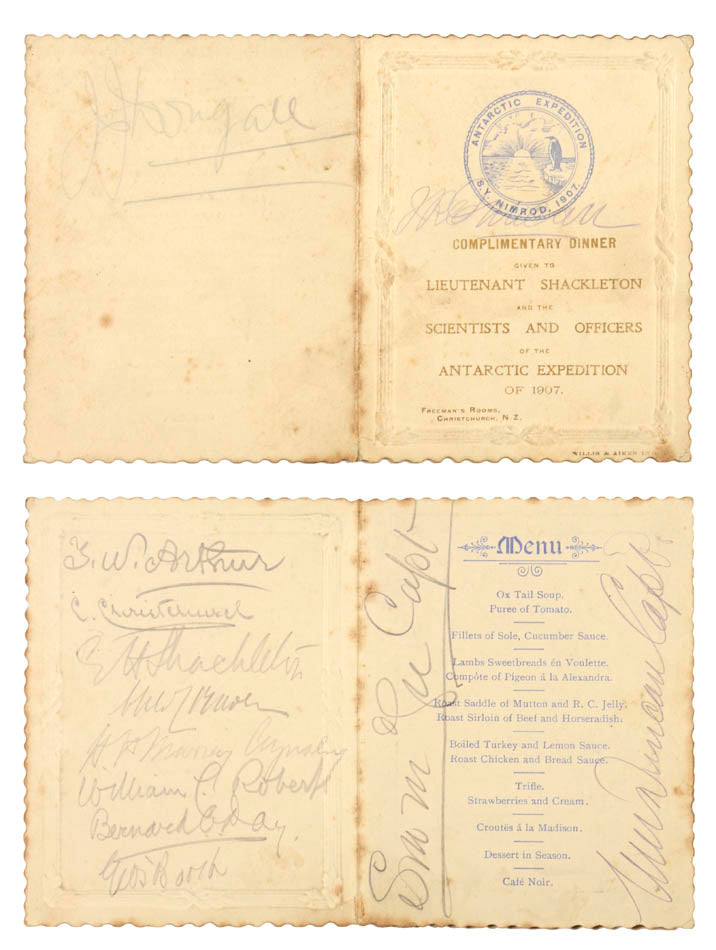 ANTARCTIC EXPEDITION
S.Y. NIMROD, 1907.
COMPLIMENTARY DINNER
GIVEN TO
LIEUTENANT SHACKLETON
AND THE
SCIENTISTS AND OFFICERS
OF THE
ANTARCTIC EXPEDITION
OF 1907.
FREEMAN'S ROOMS,
CHRISTCHURCH, N.Z.
WILLIS & AIKEN
T. W. Arthur
C. Christchurch
E H Shackleton
William C Roberts
Bernard C Day.
Geo Booth
Capt
Menu
Ox Tail Soup.
Puree of Tomato.
Fillets of Sole, Cucumber Sauce.
Lambs Sweetbreads én Voulette.
Compôte of Pigeon á la Alexandra.
Roast Saddle of Mutton and R. C. Jelly.
Roast Sirloin of Beef and Horseradish.
Boiled Turkey and Lemon Sauce.
Roast Chicken and Bread Sauce.
Trifle.
Strawberries and Cream.
Croutés á la Madison.
Dessert in Season.
Café Noir.
Duncan Capt